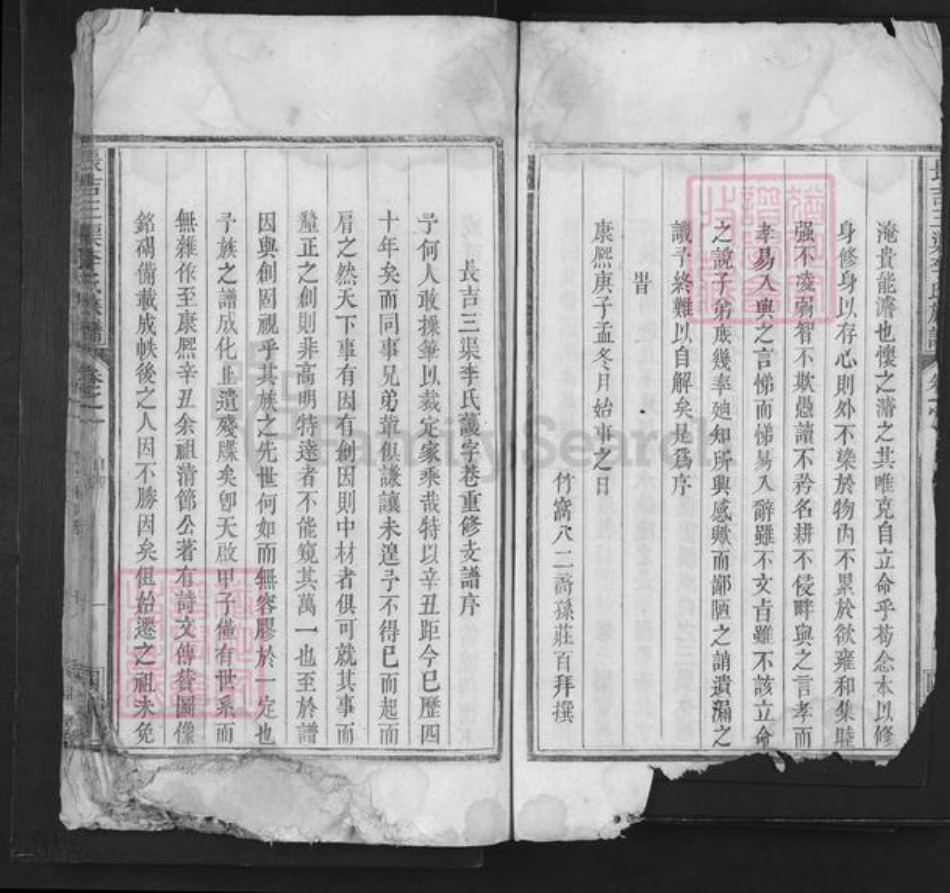 淹貴能濬也懷之濬之其唯克自立命乎苟念本以修
身修身以存心則外不染於物內不累於欲雍和集睦
强不凌弱智不欺愚讀不矜名耕不侵畔與之言孝而
孝易入與之言悌而悌易入辭雖不文旨雖不該立命
之說子弟庶幾率廸知所興感歟而鄙陋之誚遺漏之
譏予終難以自解矣是爲序
旹
康熈庚子孟冬月始事之日
竹窩八二裔孫莊百拜撰
長吉三渠李氏護字卷重修支譜序
予何人敢操筆以裁定家乘哉特以辛丑距今已歷四
十年矣而同事兄弟輩俱謙讓未遑予不得已而起而
肩之然天下事有因有創因則中材者俱可就其事而
釐正之創則非高明特達者不能窺其萬一也至於譜
因與創固視乎其族之先世何如而無容膠於一定也
予族之譜成化止遺殘牒矣卽天啟甲子僅有世系而
無雜作至康熈辛丑余祖淯節公著有詩文傳贊圖像
銘碣備載成帙後之人因不勝因矣但始遷之祖未免
長吉三渠李氏族譜
卷之一
FamilySearch